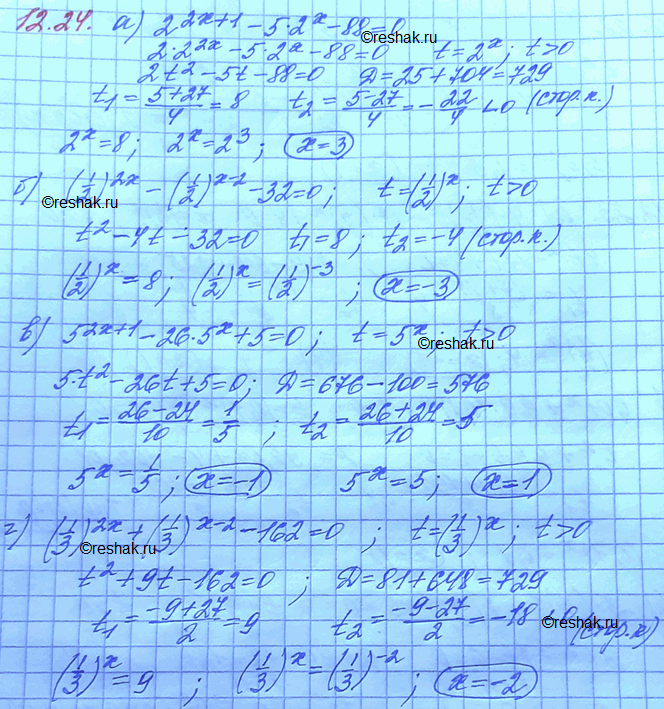 12.24. а) 2^(2x+1) − 5·2^x − 88 = 0
©reshak.ru
2·2^(2x) − 5·2^x − 88 = 0   t = 2^x; t > 0
2t² − 5t − 88 = 0   D = 25 + 704 = 729
t₁ = (5+27)/4 = 8   t₂ = (5−27)/4 = −22/4 < 0 (стор.к.)
2^x = 8; 2^x = 2³; x = 3
б) (1/2)^(2x) − (1/2)^(x−2) − 32 = 0; t = (1/2)^x; t > 0
©reshak.ru
t² − 4t − 32 = 0   t₁ = 8; t₂ = −4 (стор.к.)
(1/2)^x = 8; (1/2)^x = (1/2)^(−3); x = −3
в) 5^(2x+1) − 26·5^x + 5 = 0; t = 5^x; t > 0
©reshak.ru
5·t² − 26t + 5 = 0; D = 676 − 100 = 576
t₁ = (26−24)/10 = 1/5; t₂ = (26+24)/10 = 5
5^x = 1/5; x = −1   5^x = 5; x = 1
г) (1/3)^(2x) + (1/3)^(x−2) − 162 = 0; t = (1/3)^x; t > 0
©reshak.ru
t² + 9t − 162 = 0; D = 81 + 648 = 729
t₁ = (−9+27)/2 = 9   t₂ = (−9−27)/2 = −18 < 0 (стор.к)
©reshak.ru
(1/3)^x = 9; (1/3)^x = (1/3)^(−2); x = −2